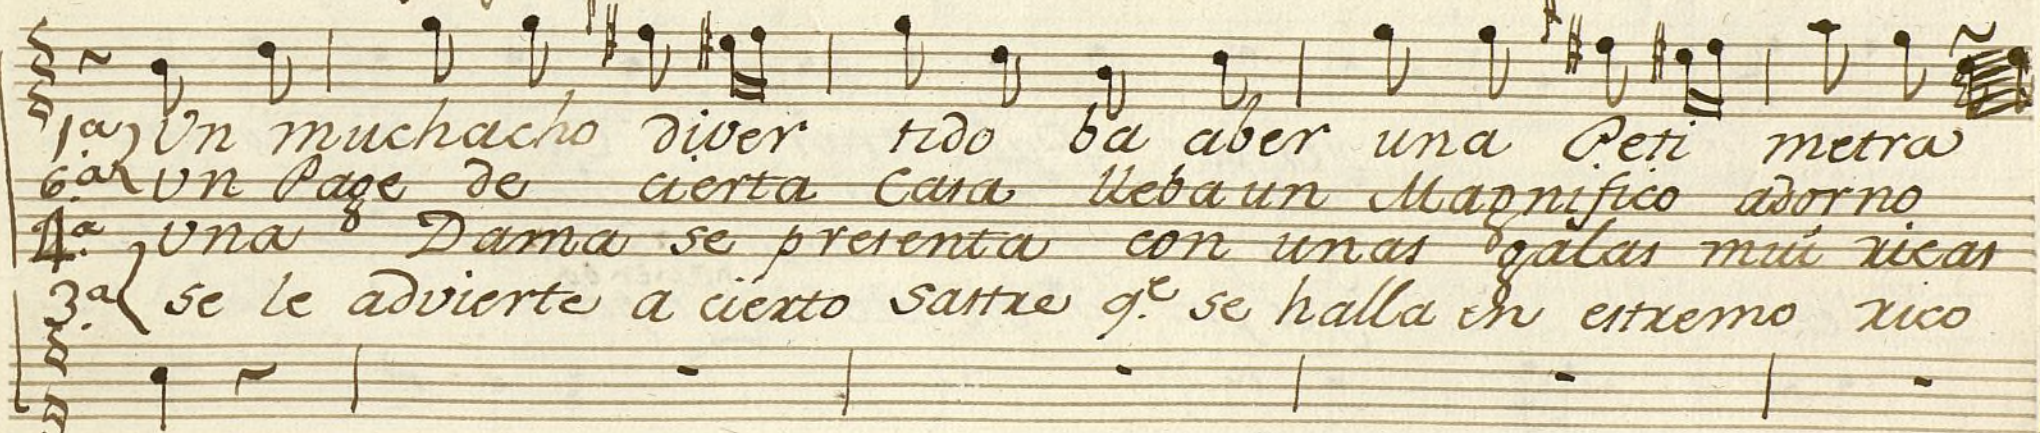 1ª Un muchacho diver tido ba aber una Peti metra
6ª Un Page de cierta Casa lleba un Magnifico adorno
4ª Una Dama se presenta con unas galas mui ricas
3ª se le advierte a cierto sastre q.e se halla en estremo rico